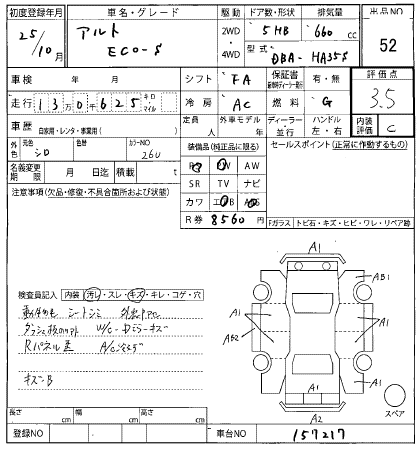 初度登録年月 車名・グレード 駆動 ドア数・形状 排気量 出品NO
25/10月 アルト ECO-S 2WD ・ 4WD 5HB 660 cc 52
型式 DBA-HA35S
車検 年 月 シフト FA 保証書 有・無 評価点
走行 13万0千625 キロ・マイル 冷房 AC 燃料 G 3.5
車歴 自家用・レンタ・事業用( ) 定員 人 外車モデル 年 ディーラー 並行 ハンドル 左・右 内装評価 C
外色 元色 シロ 色替 カラーNO 26U
装備品(純正品に限る) セールスポイント(正常に作動するもの)
名義変更期限 月 日迄 積載 t
PS PW AW
SR TV ナビ
カワ エアB ABS
R券 8560 円
注意事項(欠品・修復・不具合箇所および状態)
Fガラス トビ石・キズ・ヒビ・ワレ・リペア跡
A1
A1
AB1
A1
AB2
A1
A1
A1
A1
A2
スペア
検査員記入 内装 汚れ・スレ・キズ・キレ・コゲ・穴
シートシミ
W/C-Dミラーキズ
Rパネル
キズ-B
長さ cm 幅 cm 高さ cm
登録NO 車台NO 157217